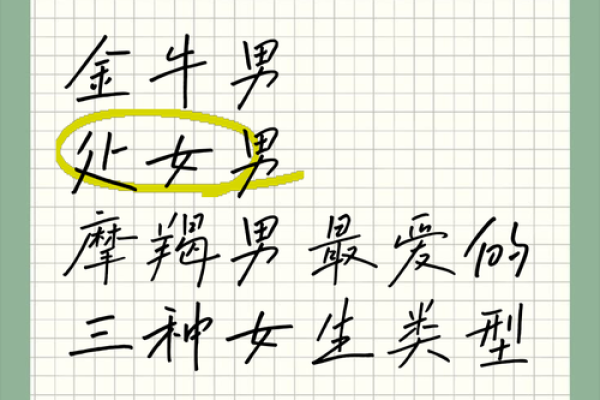 金牛男
处女男
摩羯男最爱的
三种女生类型